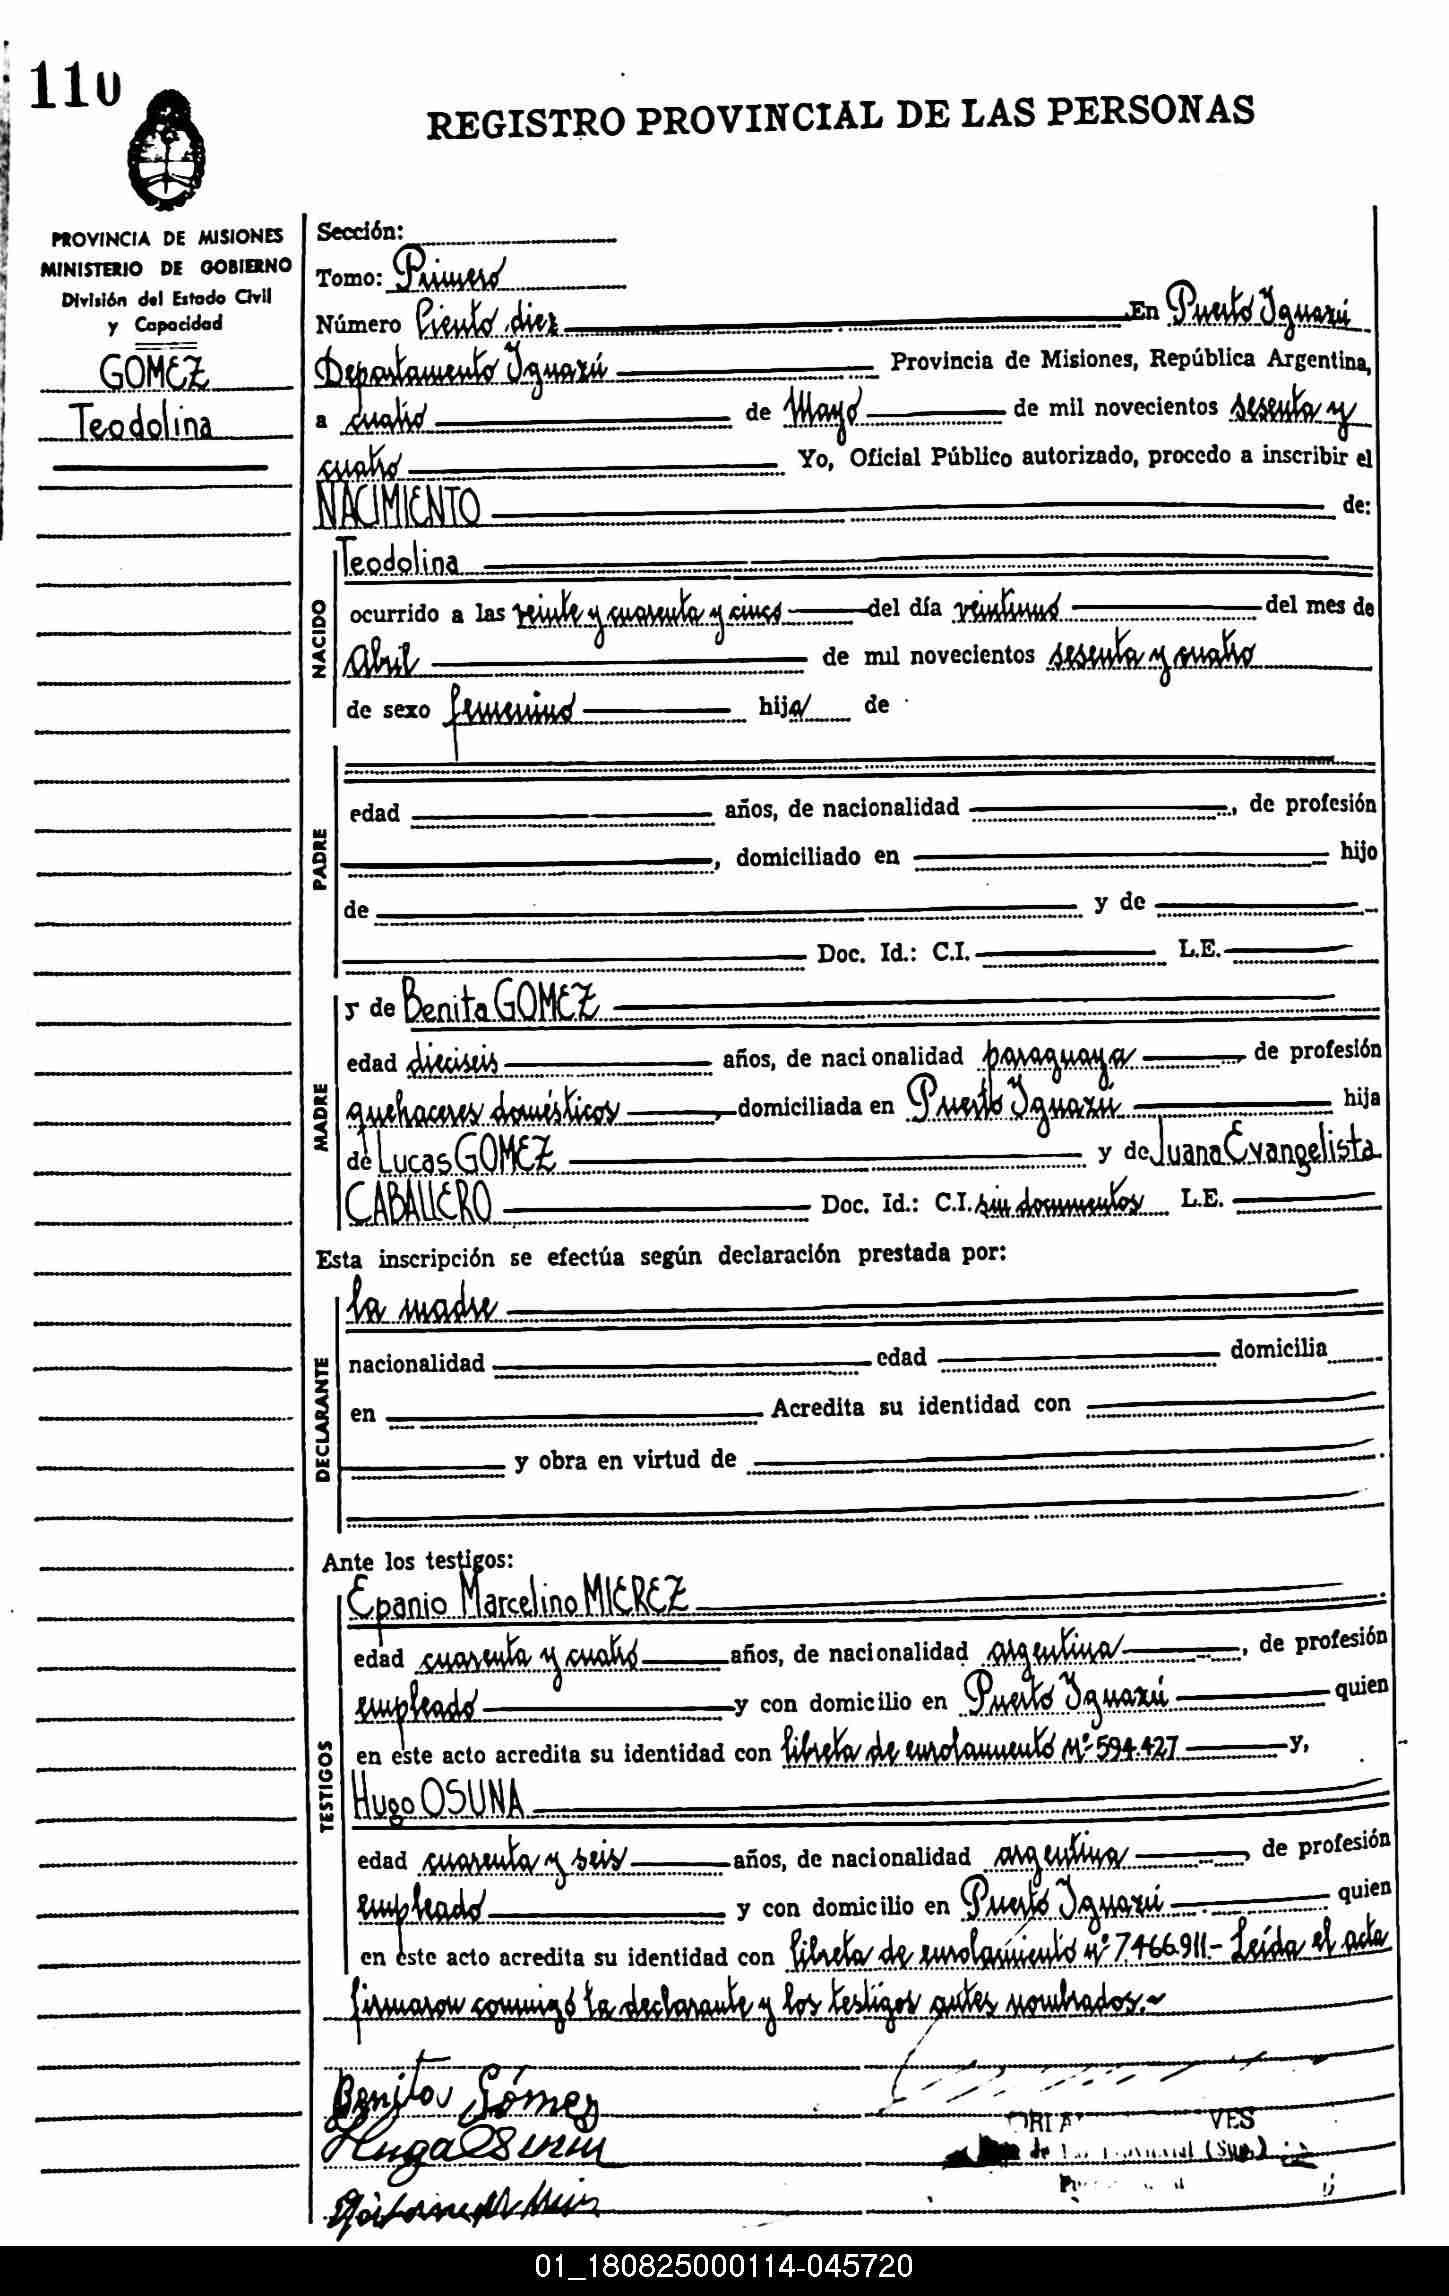 110
REGISTRO PROVINCIAL DE LAS PERSONAS
PROVINCIA DE MISIONES
MINISTERIO DE GOBIERNO
División del Estado Civil
y Capacidad
GOMEZ
Teodolina
Sección:
Tomo: Primero
Número Ciento diez En Puerto Iguazú
Departamento Iguazú Provincia de Misiones, República Argentina,
a cuatro de Mayo de mil novecientos sesenta y
cuatro Yo, Oficial Público autorizado, procedo a inscribir el
NACIMIENTO de:
NACIDO
Teodolina
ocurrido a las veinte y cuarenta y cinco del día veintiuno del mes de
Abril de mil novecientos sesenta y cuatro
de sexo femenino hija de
PADRE
edad años, de nacionalidad , de profesión
, domiciliado en hijo
de y de
Doc. Id.: C.I. L.E.
MADRE
y de Benita GOMEZ
edad dieciseis años, de nacionalidad paraguaya , de profesión
quehaceres domésticos , domiciliada en Puerto Iguazú hija
de Lucas GOMEZ y de Juana Evangelista
CABALLERO Doc. Id.: C.I. sin documentos L.E.
Esta inscripción se efectúa según declaración prestada por:
DECLARANTE
la madre
nacionalidad edad domicilia
en Acredita su identidad con
y obra en virtud de
Ante los testigos:
TESTIGOS
Epanio Marcelino MIEREZ
edad cuarenta y cuatro años, de nacionalidad argentina , de profesión
empleado y con domicilio en Puerto Iguazú quien
en este acto acredita su identidad con libreta de enrolamiento Nº 594.427 y,
Hugo OSUNA
edad cuarenta y seis años, de nacionalidad argentina , de profesión
empleado y con domicilio en Puerto Iguazú quien
en este acto acredita su identidad con libreta de enrolamiento nº 7.466.911.- Leída el acta
firmaron conmigo la declarante y los testigos antes nombrados.~
Benita Gómez
Hugo Osuna
VES
de (Sup.)
01_180825000114-045720